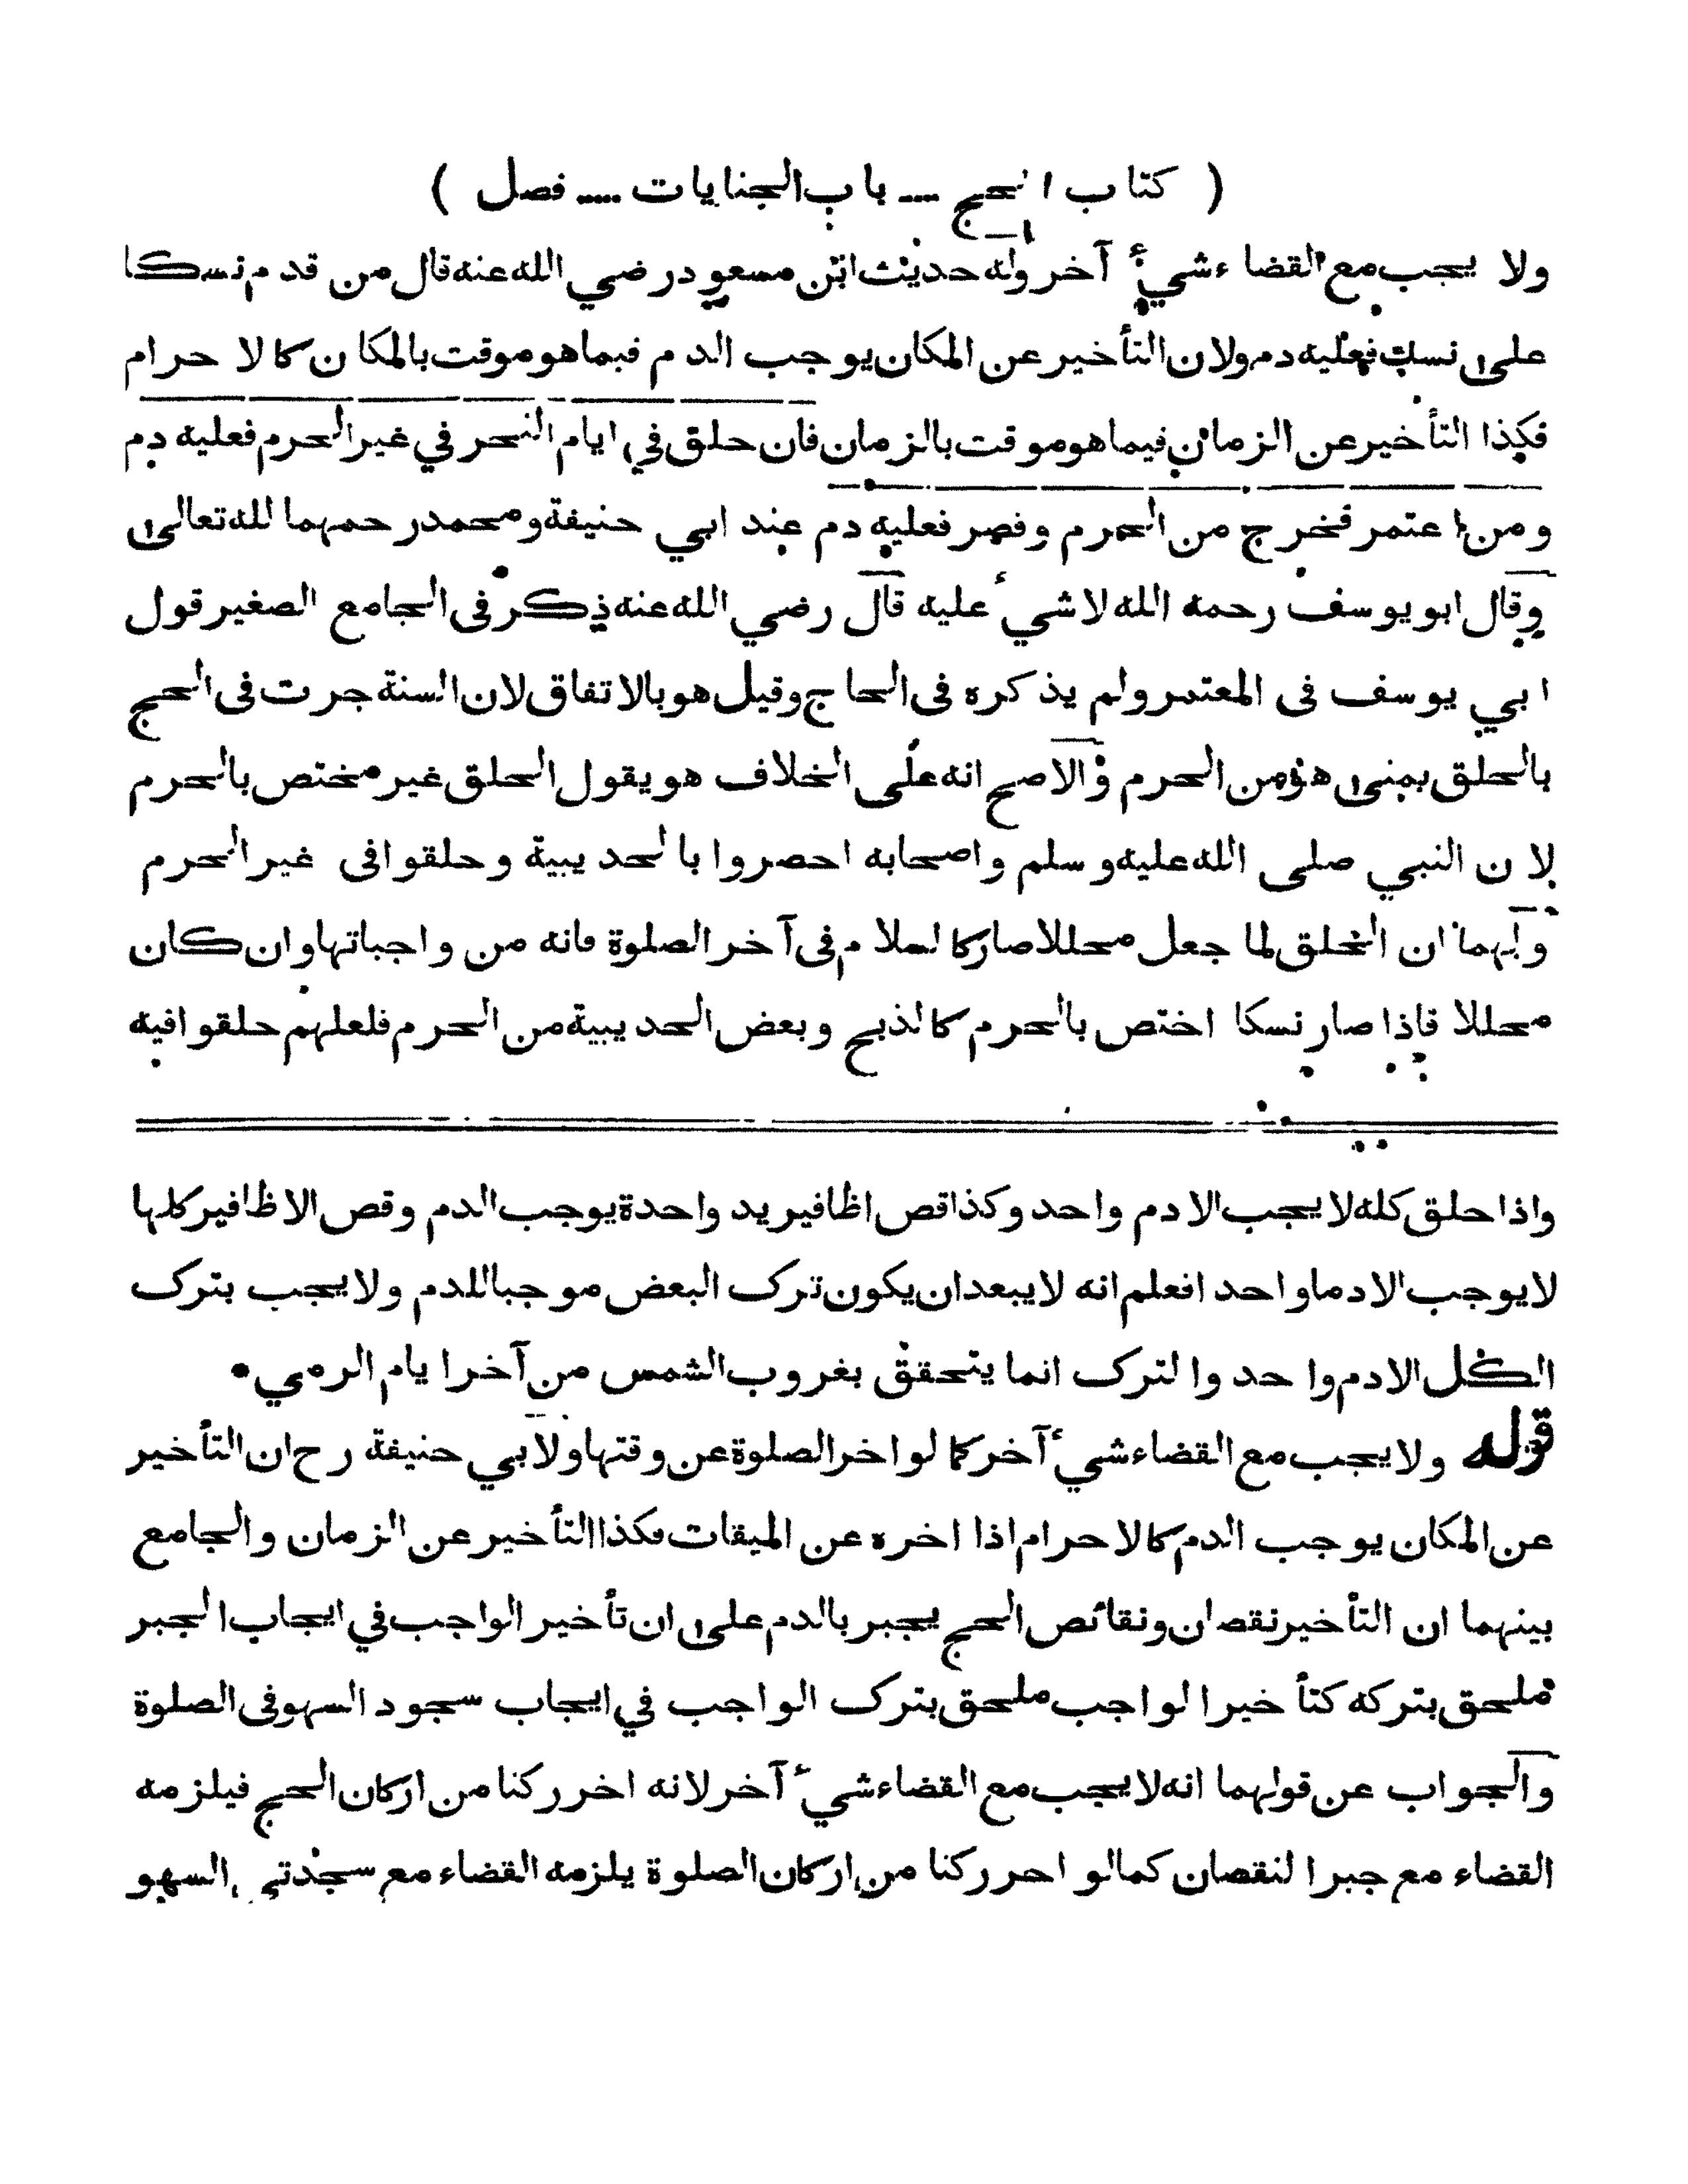 ( كتاب الحج ـــ باب الجنايات ـــ فصل )
ولا يجب مع القضاء شيئ آخر وله حديث ابن مسعود رضي الله عنه قال من قدم نسكا
على نسك فعليه دم ولان التأخير عن المكان يوجب الدم فيما هو موقت بالمكان كالاحرام
فكذا التأخير عن الزمان فيما هو موقت بالزمان فان حلق في ايام النحر في غير الحرم فعليه دم
ومن اعتمر فخرج من الحرم وقصر فعليه دم عند ابي حنيفة ومحمد رحمهما الله تعالى
وقال ابو يوسف رحمه الله لا شيئ عليه قال رضي الله عنه ذكر فى الجامع الصغير قول
ابي يوسف فى المعتمر ولم يذكره فى الحاج وقيل هو بالاتفاق لان السنة جرت فى الحج
بالحلق بمنى وهو من الحرم والاصح انه على الخلاف هو يقول الحلق غير مختص بالحرم
لان النبي صلى الله عليه وسلم واصحابه احصروا بالحديبية وحلقوا فى غير الحرم
ولهما ان الحلق لما جعل محللا صار كالسلام فى آخر الصلوة فانه من واجباتها وان كان
محللا فاذا صار نسكا اختص بالحرم كالذبح وبعض الحديبية من الحرم فلعلهم حلقوا فيه
واذا حلق كله لا يجب الا دم واحد وكذا قص اظافير يد واحدة يوجب الدم وقص الاظافير كلها
لا يوجب الا دما واحدا فعلم انه لا يبعد ان يكون ترك البعض موجبا للدم ولا يجب بترك
الكل الا دم واحد والترك انما يتحقق بغروب الشمس من آخر ايام الرمي •
قوله ولا يجب مع القضاء شيئ آخر كما لو اخر الصلوة عن وقتها ولابي حنيفة رح ان التأخير
عن المكان يوجب الدم كالاحرام اذا اخره عن الميقات فكذا التأخير عن الزمان والجامع
بينهما ان التأخير نقصان ونقائص الحج يجبر بالدم على ان تأخير الواجب في ايجاب الجبر
ملحق بتركه كتأخير الواجب ملحق بترك الواجب في ايجاب سجود السهو فى الصلوة
والجواب عن قولهما انه لا يجب مع القضاء شيئ آخر لانه اخر ركنا من اركان الحج فيلزمه
القضاء مع جبر النقصان كما لو اخر ركنا من اركان الصلوة يلزمه القضاء مع سجدتي السهو